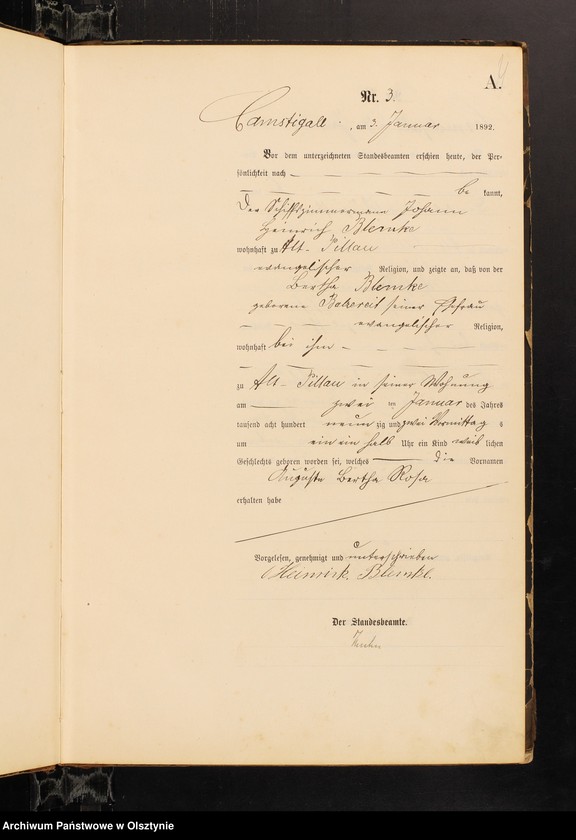 A.
Nr. 3.
Camstigall, am 3. Januar 1892.
Vor dem unterzeichneten Standesbeamten erschien heute, der Per-
sönlichkeit nach
be kannt,
Der Schiffszimmermann Johann
Heinrich Blemke
wohnhaft zu Alt-Pillau
evangelischer Religion, und zeigte an, daß von der
Bertha Blemke
geborene seiner Ehefrau
evangelischer Religion,
wohnhaft bei ihm
zu Alt-Pillau in seiner Wohnung
am zwei ten Januar des Jahres
tausend acht hundert neun zig und zwei Vormittag s
um ein ein halb Uhr ein Kind weib lichen
Geschlechts geboren worden sei, welches die Vornamen
Auguste Bertha Rosa
erhalten habe
Vorgelesen, genehmigt und unterschrieben
Heinrich Blemke.
Der Standesbeamte.
Archiwum Państwowe w Olsztynie